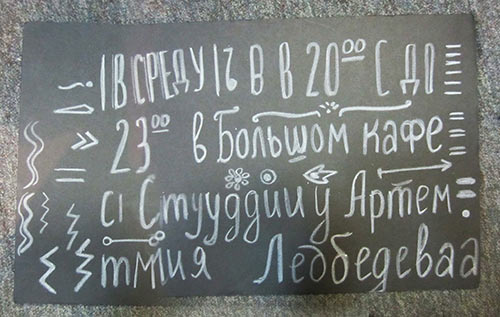 |В СРЕДУ|Ъ В В 20⁰⁰ С ДО
23⁰⁰ в Большом кафе
сı Стууддиии у Артем
тмия Леоббедеваа